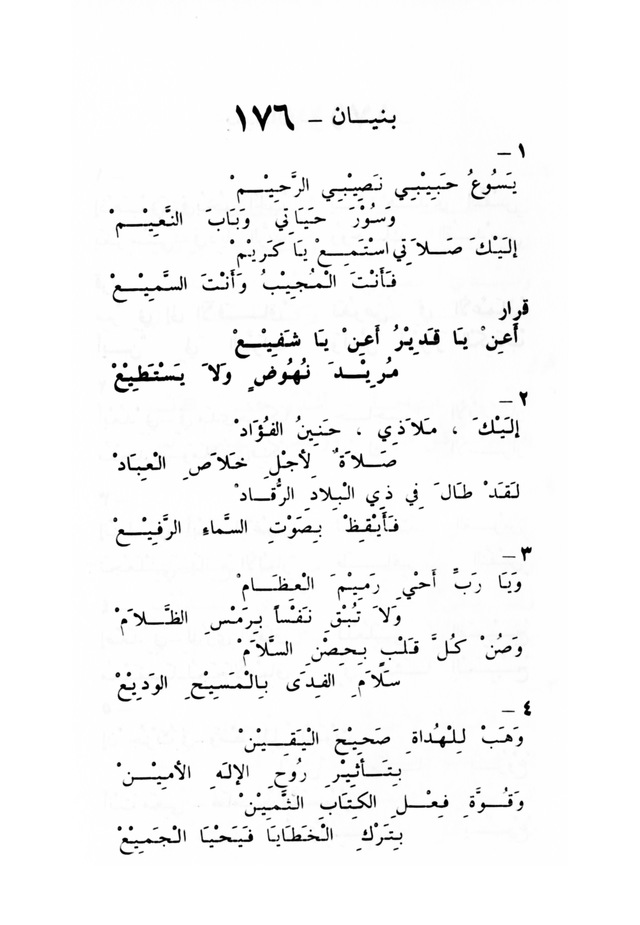 بنيان – ١٧٦
١ –
يَسُوعُ حَبِيْبِي نَصِيْبِي الرَّحِيْمْ
وَسُوْرَ حَيَاتِي وَبَابَ النَّعِيْمْ
إِلَيْكَ صَلاَتِي اسْتَمِعْ يَا كَرِيْمْ
فَأَنْتَ الْمُجِيْبُ وَأَنْتَ السَّمِيْعْ
قرار
أَعِنْ يَا قَدِيْرُ أَعِنْ يَا شَفِيْعْ
مُرِيْدَ نُهُوضٍ وَلاَ يَسْتَطِيْعْ
٢ –
إِلَيْكَ ، مَلاَذِي ، حَنِيْنُ الفُؤَادْ
صَلاَةٌ لِأَجْلِ خَلاَصِ الْعِبَادْ
لَقَدْ طَالَ فِي ذِي الْبِلاَدِ الرُّقَادْ
فَأَيْقِظْ بِصَوْتِ السَّمَاءِ الرَّفِيْعْ
٣ –
وَيَا رَبِّ أَحْيِ رَمِيْمَ الْعِظَامْ
وَلاَ تُبْقِ نَفْسَاً بِرَمْسِ الظَّلاَمْ
وَصُنْ كُلَّ قَلْبٍ بِحِصْنِ السَّلاَمْ
سَلاَمِ الفِدَى بِالْمَسِيْحِ الوَدِيْعْ
٤ –
وَهَبْ لِلْهُدَاةِ صَحِيْحَ الْيَقِيْنْ
بِتَأْثِيْرِ رُوحِ الإِلهِ الأَمِيْنْ
وَقُوَّةِ فِعْلِ الكِتَابِ الثَّمِيْنْ
بِتَرْكِ الْخَطَايَا فَيَحْيَا الْجَمِيْعْ